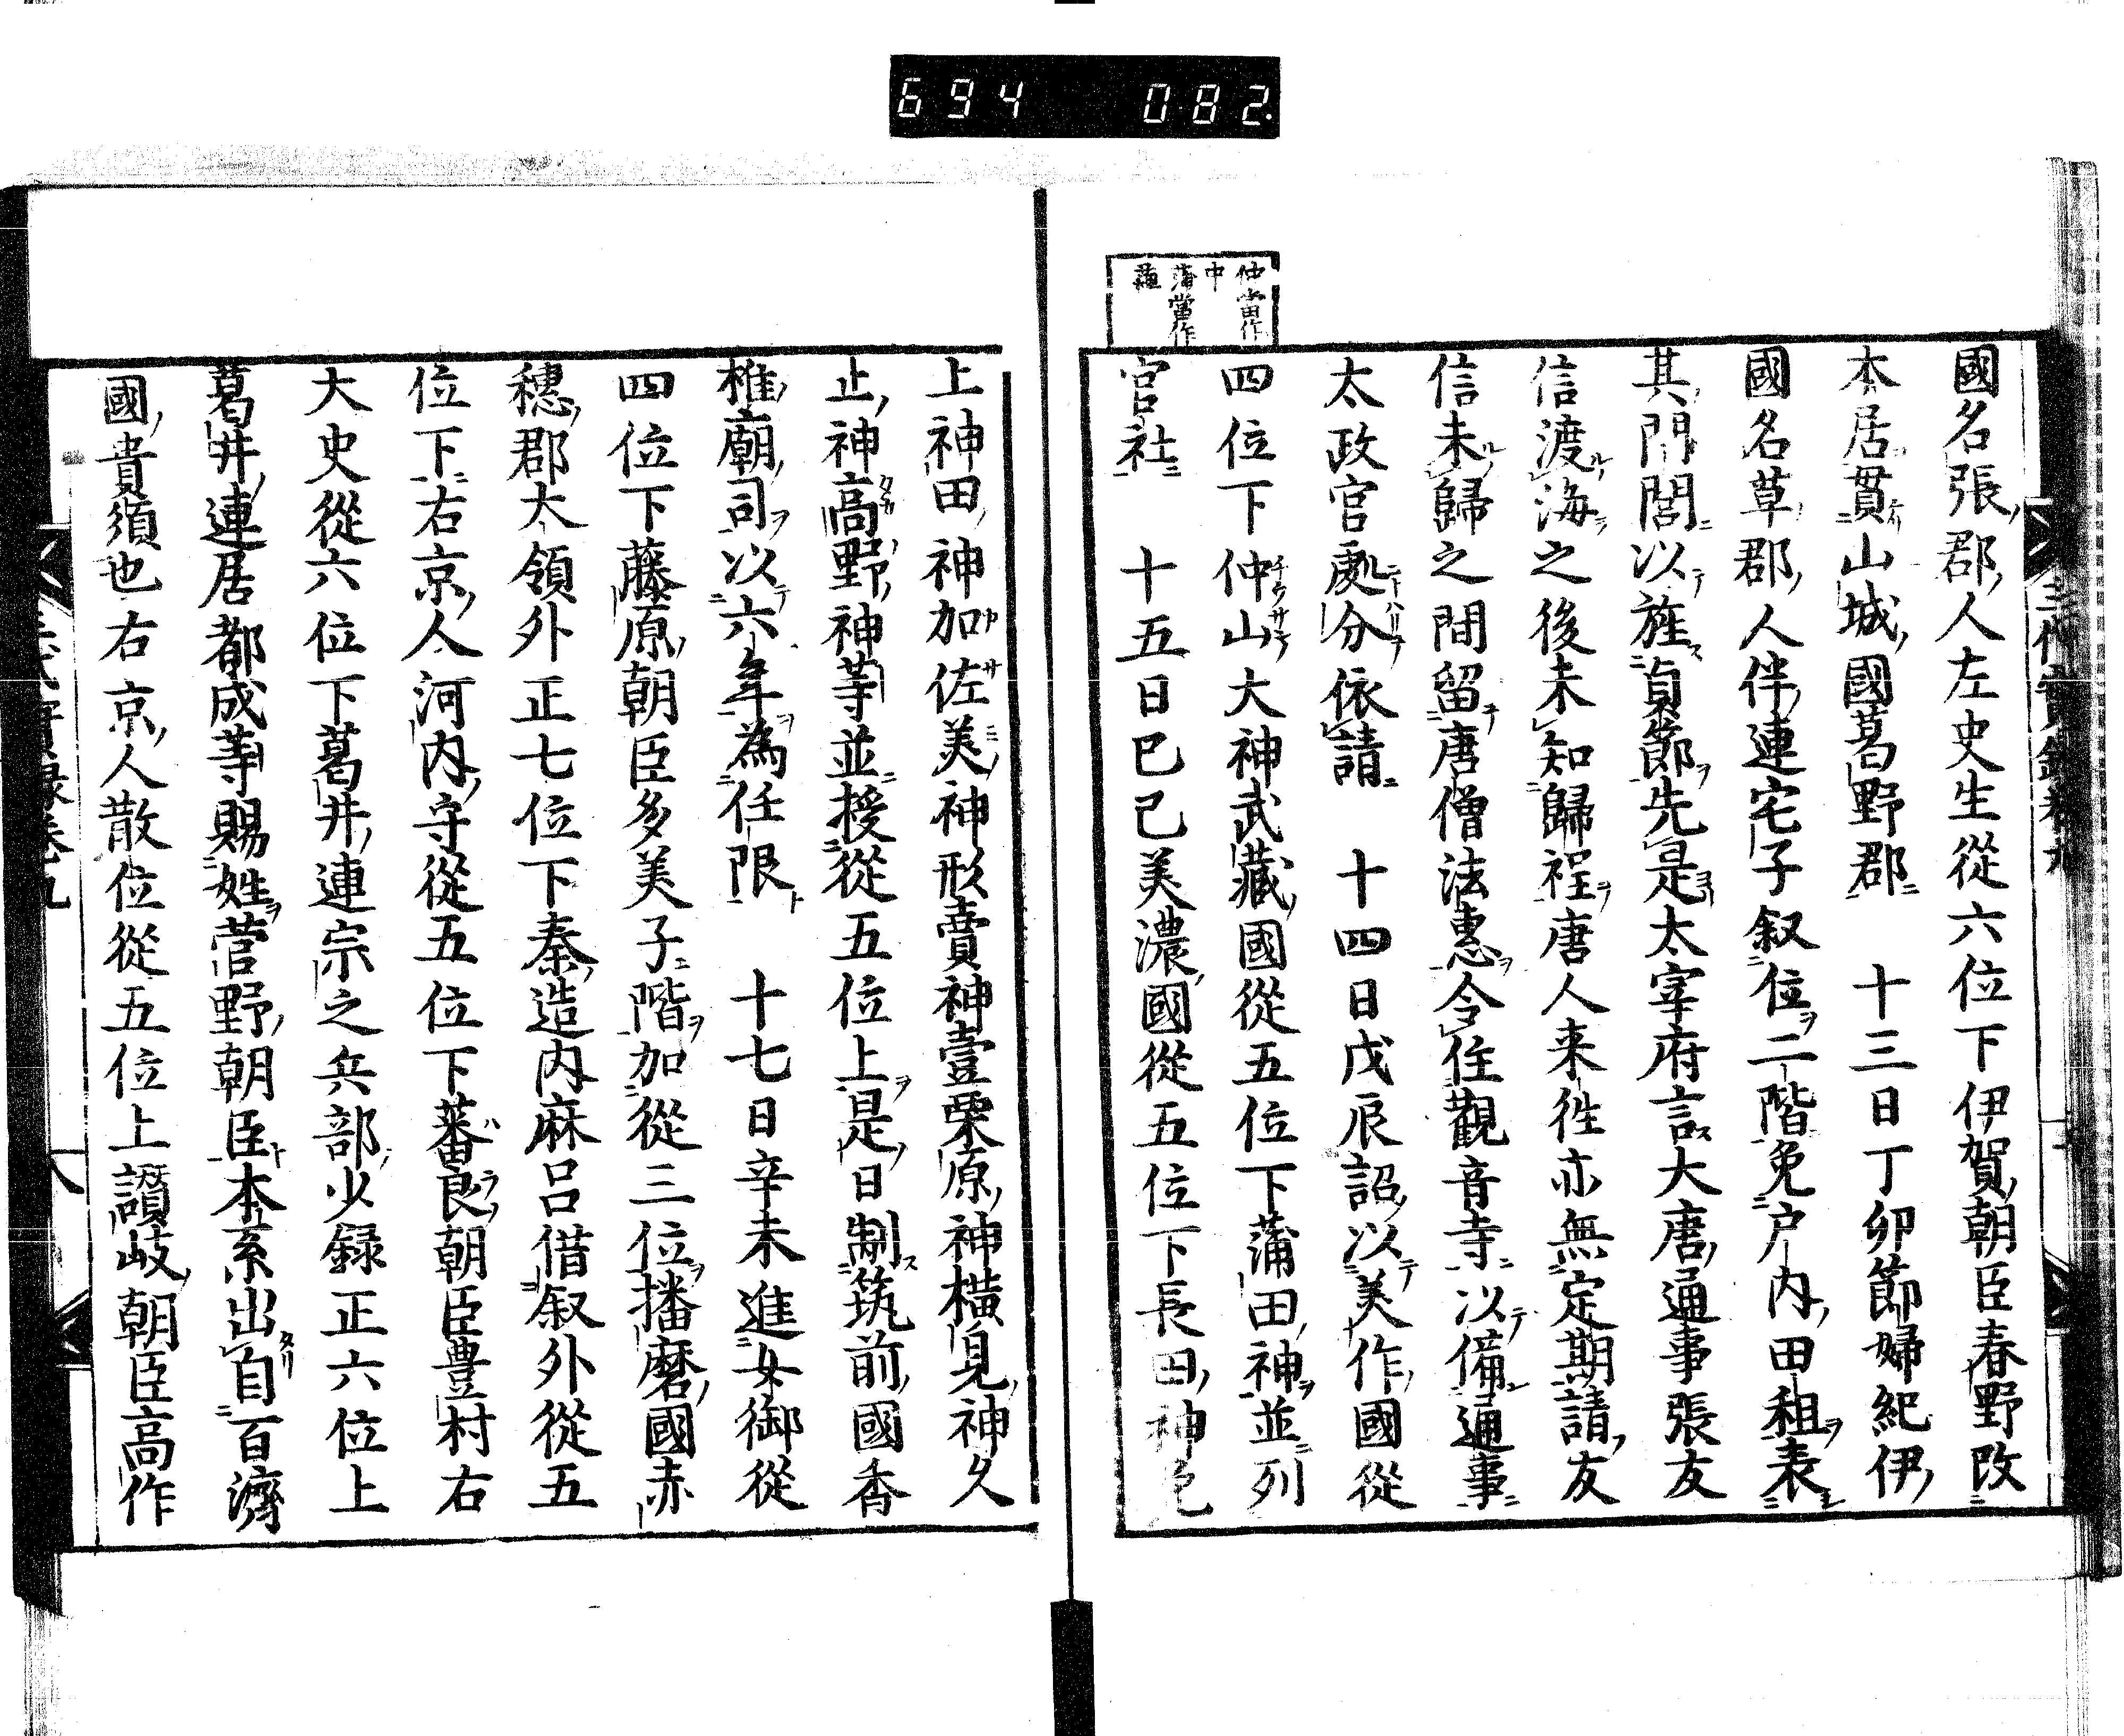 694 082
三代實録卷九
仲當作
中
蒲當作
國名張郡人左史生從六位下伊賀朝臣春野改
本居貫山城國葛野郡 十三日丁卯節婦紀伊
國名草郡人伴連宅子叙位二階免戸内田租表
其門閭以旌貞節先是太宰府言大唐通事張友
信渡海之後未知歸程唐人来徃亦無定期請友
信未歸之間留唐僧法惠令住觀音寺以備通事
太政官處分依請 十四日戊辰詔以美作國從
四位下仲山大神武藏國從五位下蒲田神並列
官社 十五日己巳美濃國從五位下長田神
上神田神加佐美神形賣神壹栗原神横見神久
止神高野神等並授從五位上是日制筑前國香
椎廟司以六年為任限 十七日辛未進女御從
四位下藤原朝臣多美子階加從三位播磨國赤
穗郡大領外正七位下秦造内麻呂借叙外從五
位下右京人河内守從五位下蕃良朝臣豊村右
大史從六位下葛井連宗之兵部少録正六位上
葛井連居都成等賜姓菅野朝臣本系出自百濟
國貴須也右京人散位從五位上讃岐朝臣高作
三代實録卷九
八